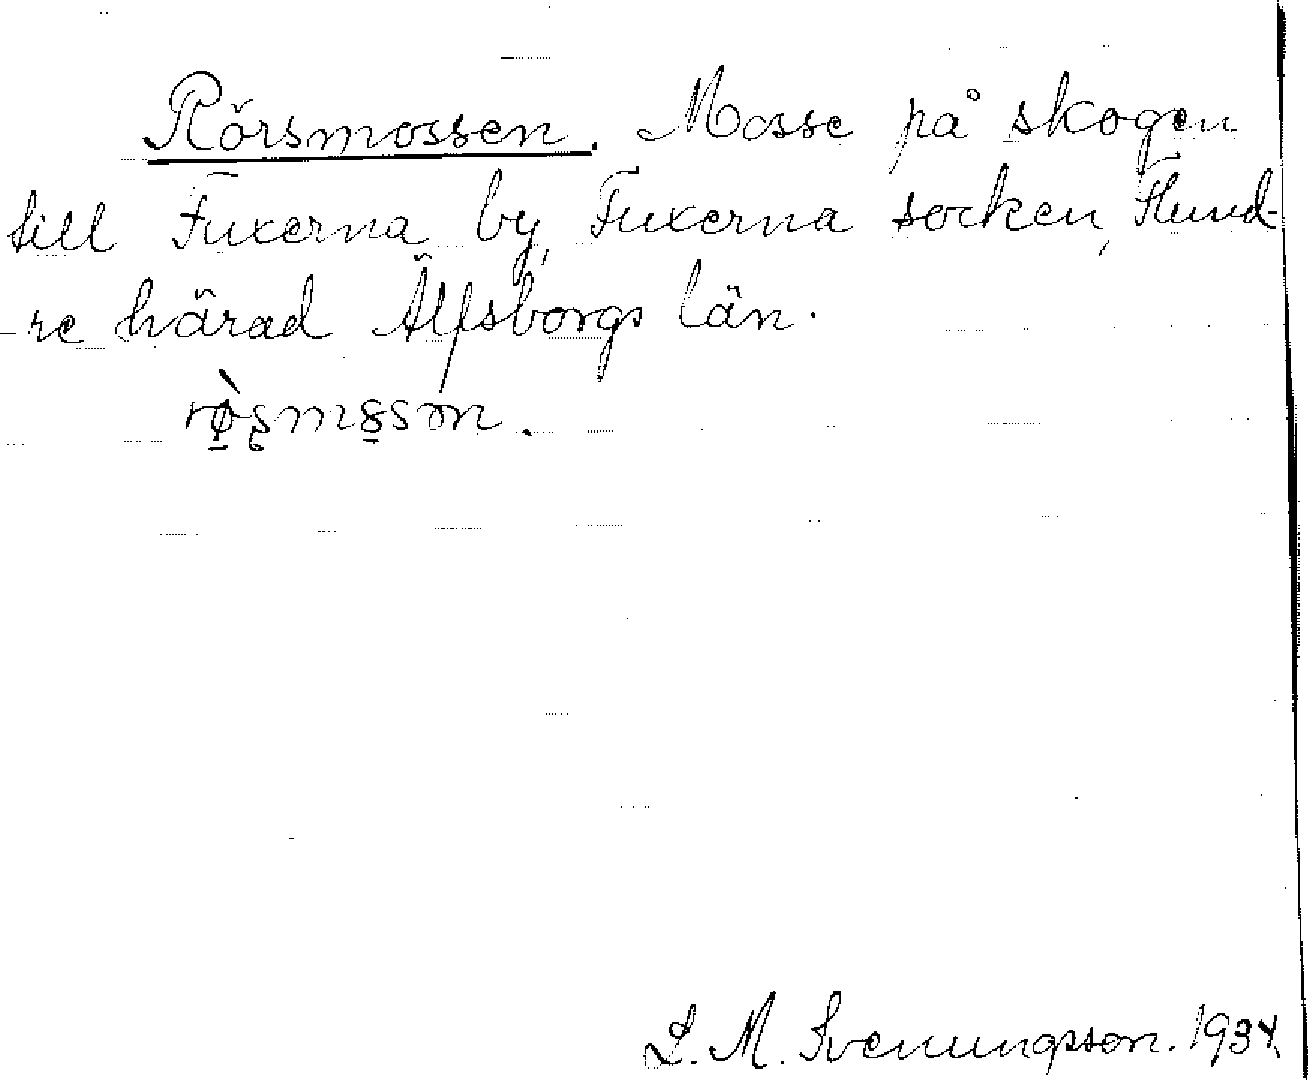 Rörsmossen. Mosse på skogen
till Fuxerna by, Fuxerna socken, Flund-
-re härad Älfsborgs län.
L. M. Svenungsson. 1934.